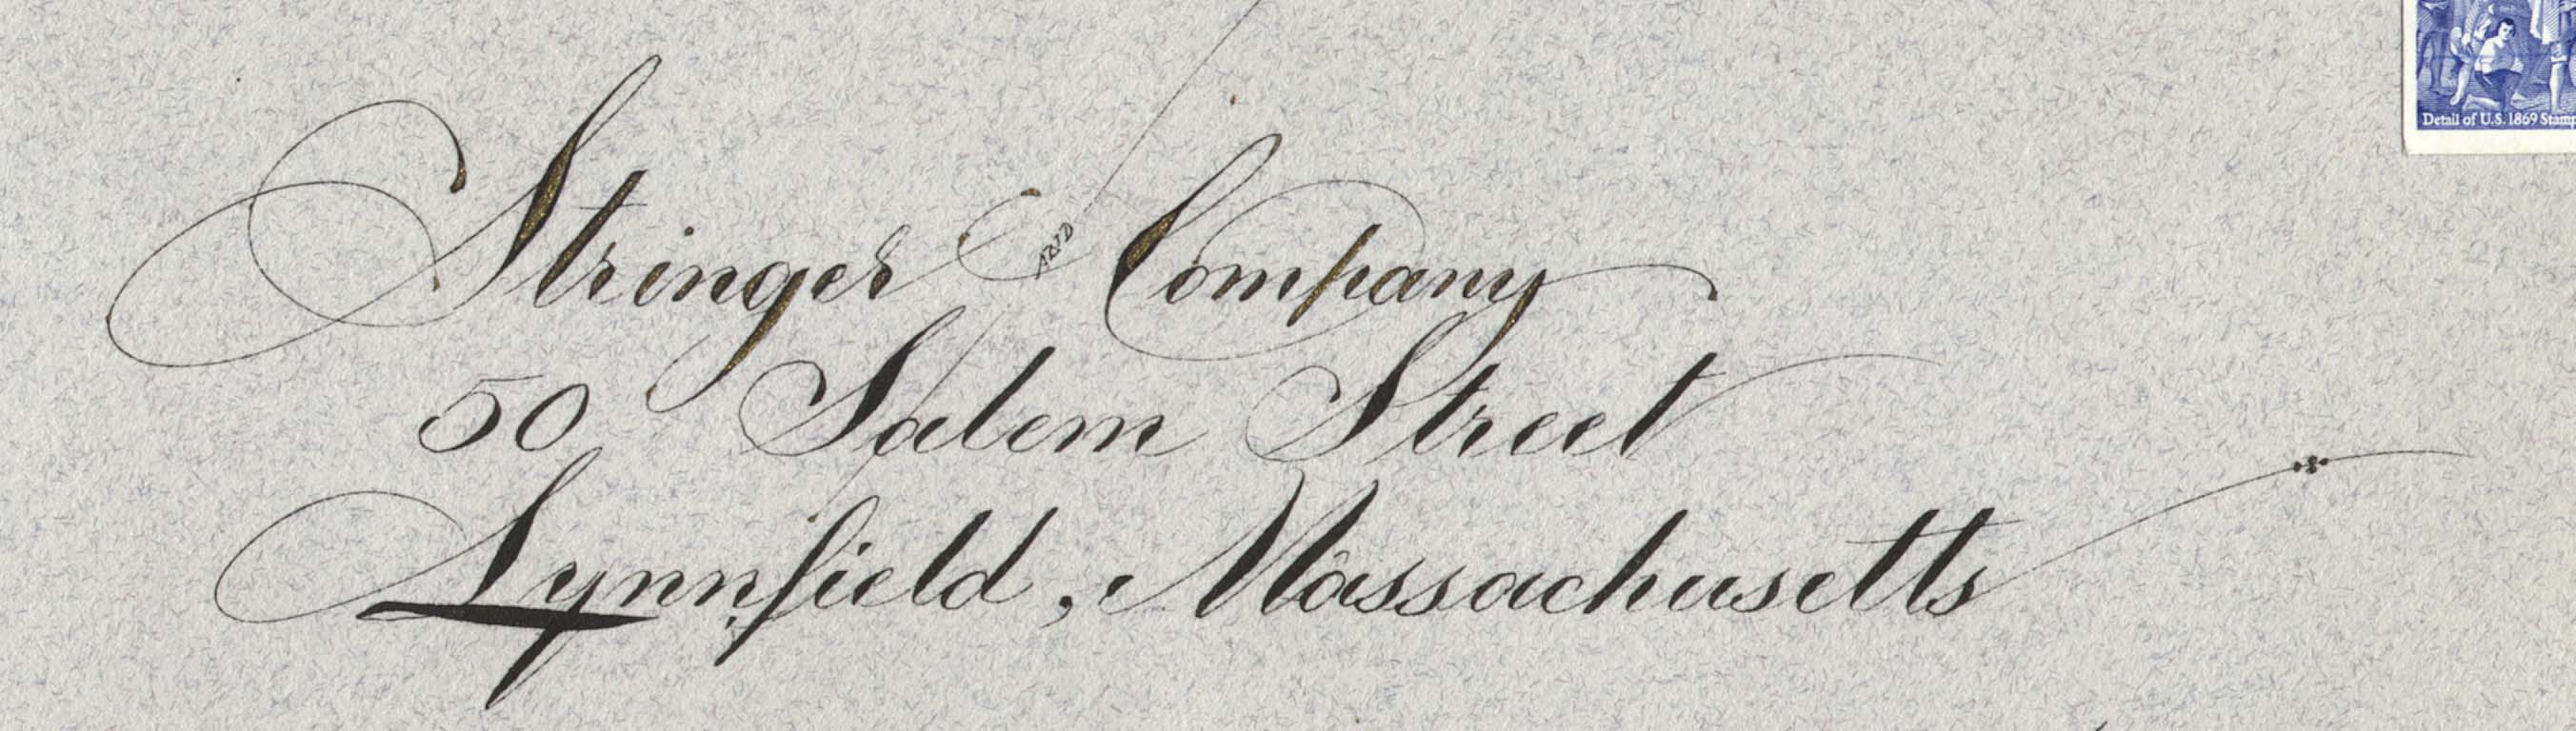 Stringer AND Company
50 Salem Street
Lynnfield, Massachusetts
Detail of U.S. 1869 Stamp